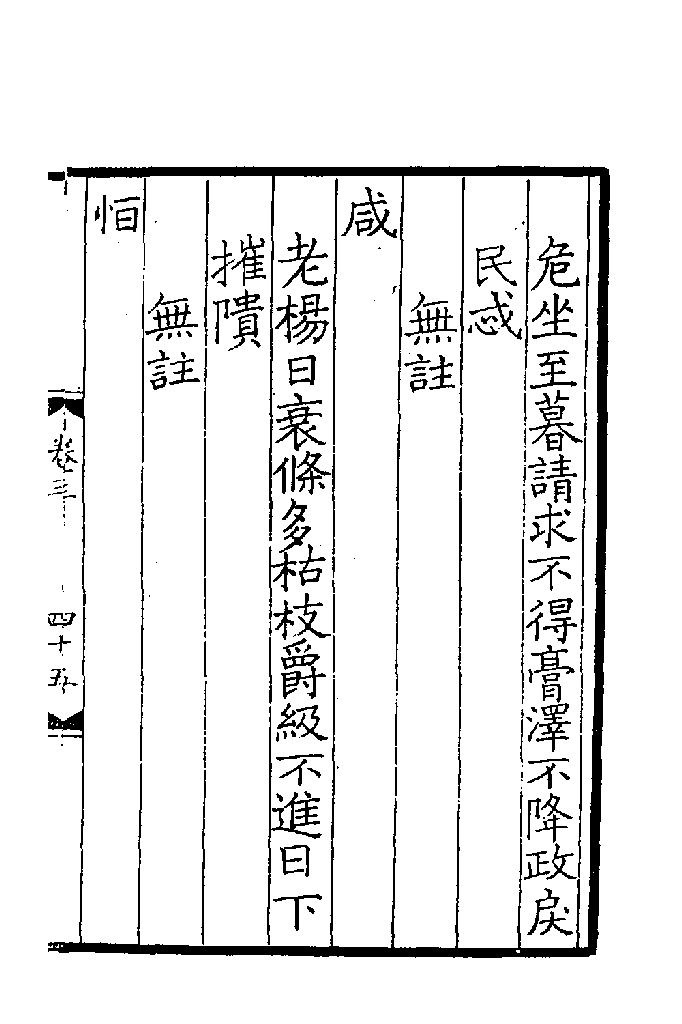 危坐至暮請求不得膏澤不降政戾
民忒
無註
咸
老楊日衰條多枯枝爵級不進日下
摧隤
無註
恒
卷三 四十五